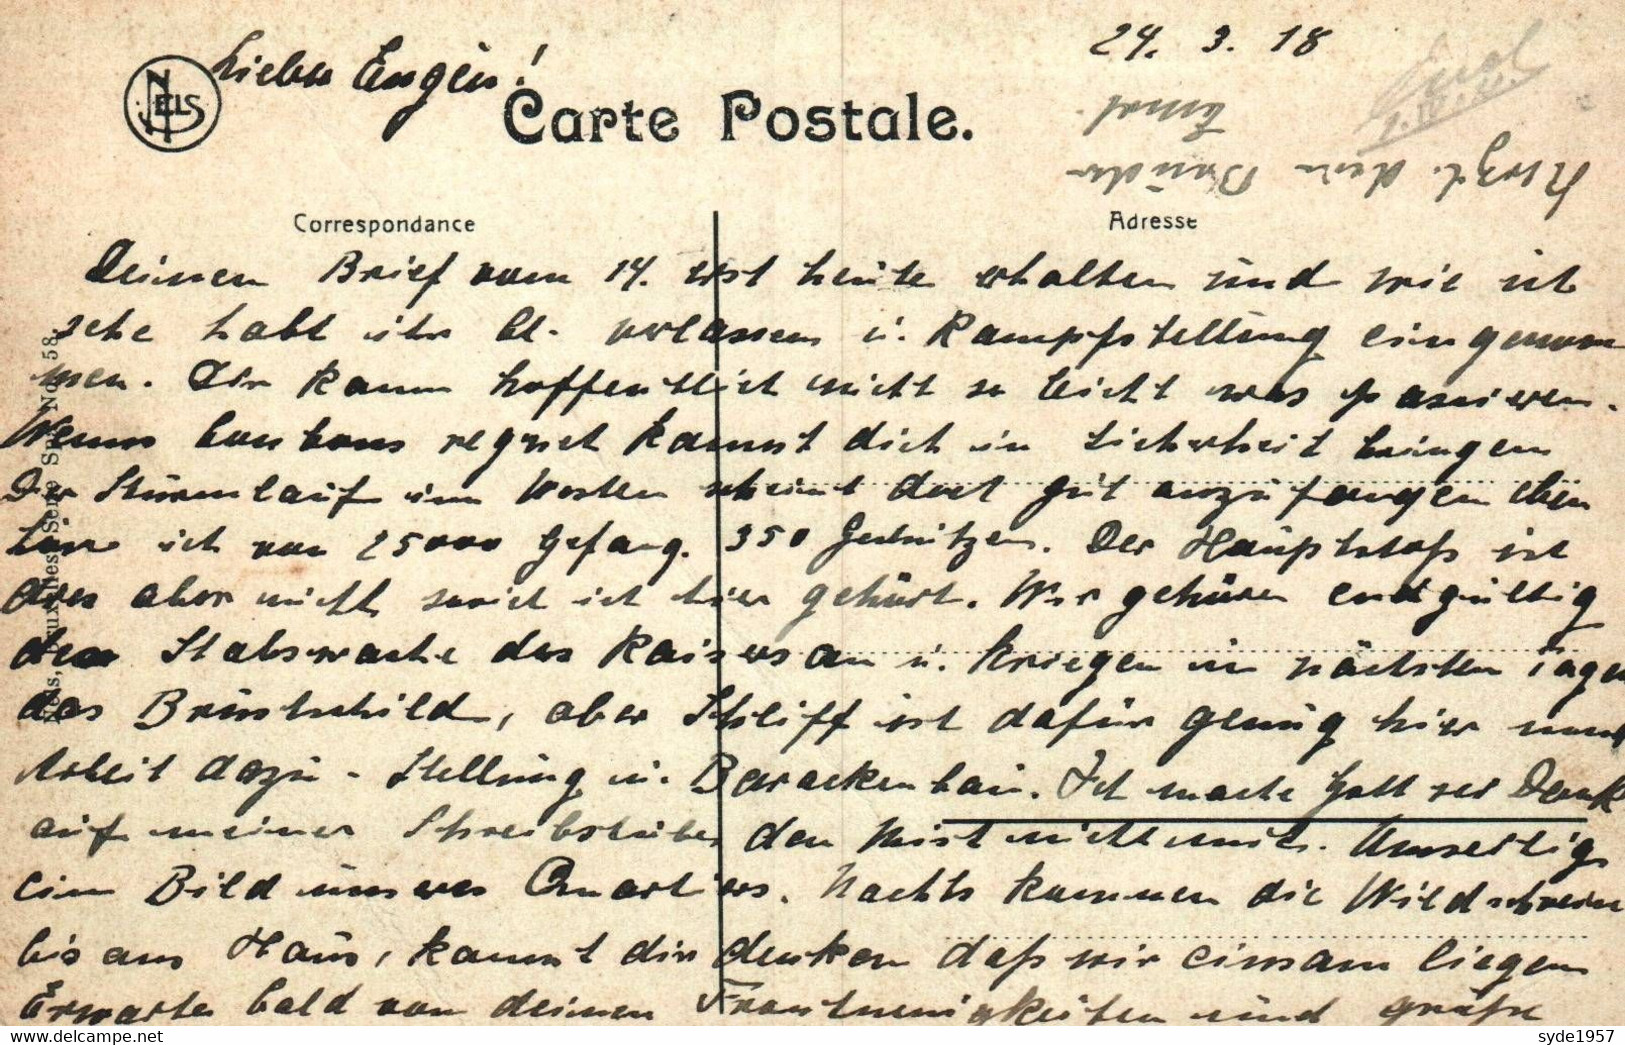 24. 3. 18
Lieber Eugen!
NELS
Carte Postale.
Herzl. dein Bruder
Ernst
Correspondance
Adresse
Deinen Brief vom 14. erst heute erhalten und wie ich
sehe habt ihr verlassen u. Kampfstellung eingenom
men. Dir kann hoffentlich nicht so leicht was passieren.
Wenns bonbons regnet kannst dich in Sicherheit bringen
Der Sturmlauf im Westen scheint dort gut anzufangen eben
höre ich von 25000 Gefang. 350 Geschützen. Der Hauptstoß ist
dies aber nicht soviel ich hier gehört. Wir gehören endgültig
der Stabswache des Kaisers an u. kriegen in nächsten Tagen
das Brustschild, aber Schliff ist dafür genug hier und
Arbeit dazu - Stellung u. Barackenbau. Ich mache Gott sei Dank
auf meiner Schreibstube den Mist nicht mit. Umseitig
ein Bild unseres Quartiers. Nachts kommen die Wildschweine
bis ans Haus, kannst dir denken daß wir einsam liegen
Erwarte bald von deinen Frontneuigkeiten und grüße
syde1957